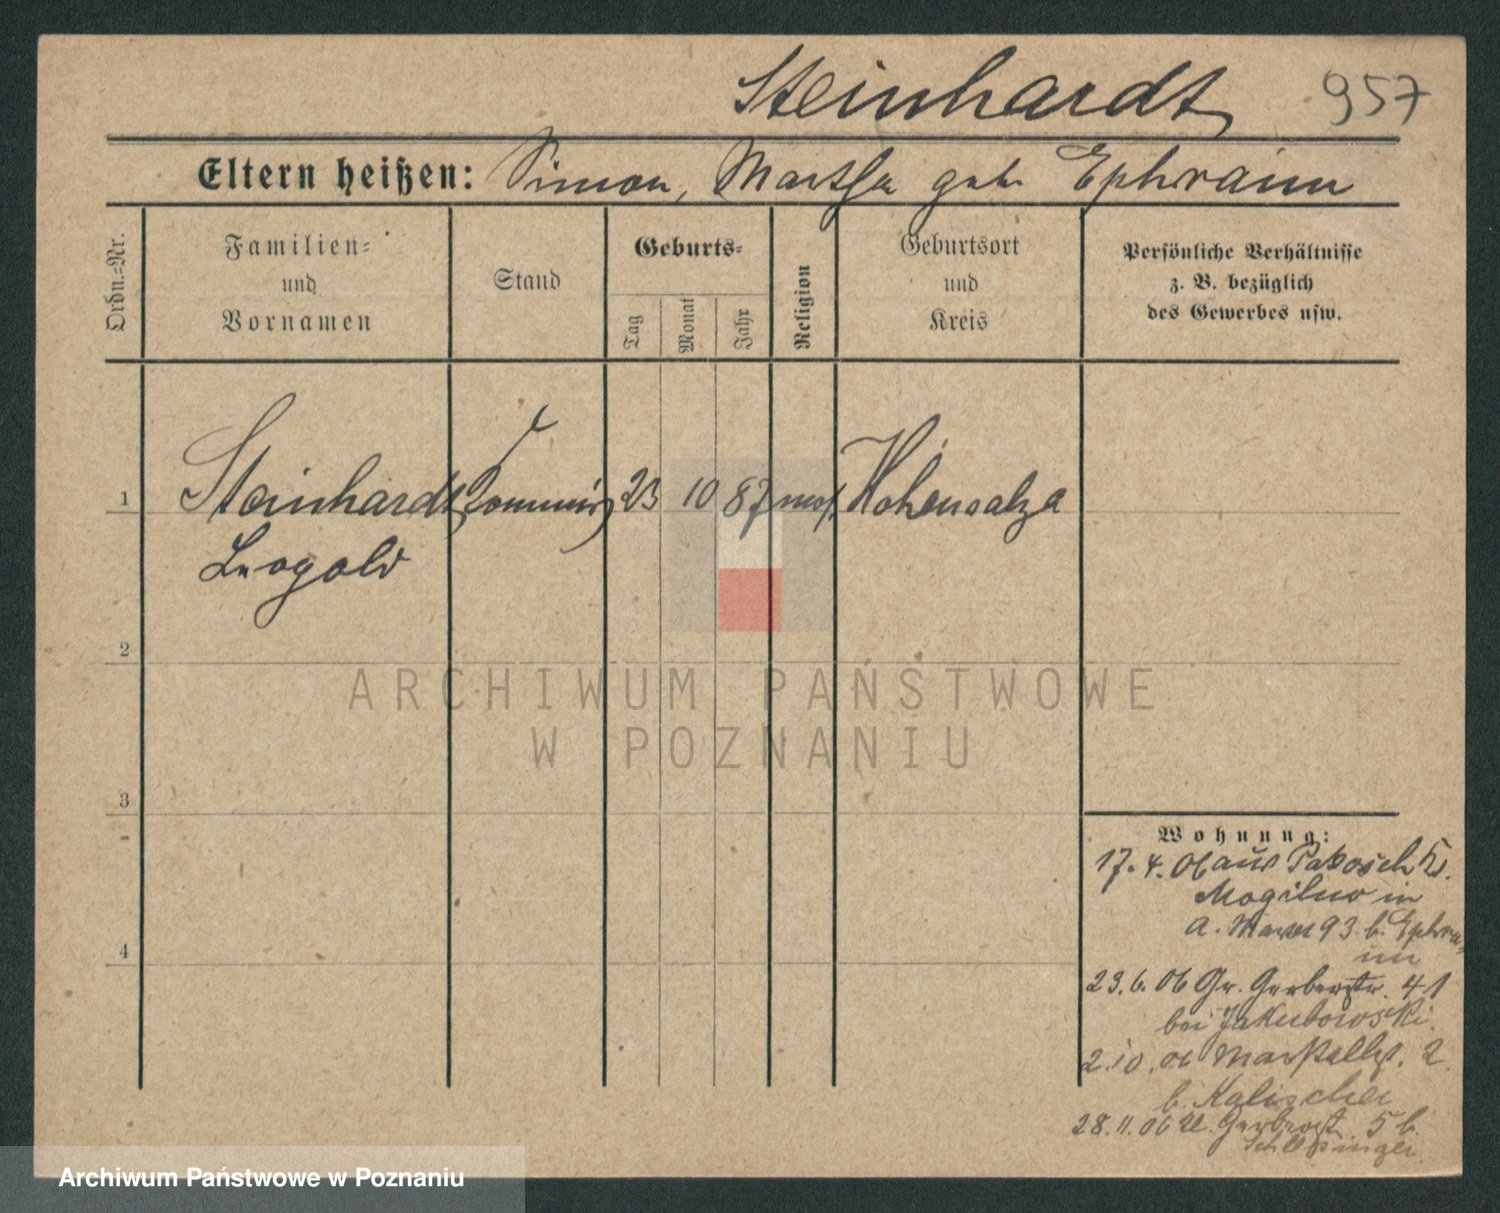 Steinhardt 957
Eltern heißen: Simon, Martha geb. Ephraim
Ordn.=Nr.
Familien=
und
Vornamen
Stand
Geburts=
Tag
Monat
Jahr
Religion
Geburtsort
und
Kreis
Persönliche Verhältnisse
z. B. bezüglich
des Gewerbes usw.
1 Steinhardt Commis 23 10 87 mos. Hohensalza
Leopold
2
3
4
Wohnung:
17. 4. 06 aus Pakosch Kr.
Mogilno in
A. Markt 93 b. Ephra-
im
23. 6. 06 Gr. Gerberstr. 41
bei Jakubowski
2. 10. 06 2
b. Kalischer
28. 11. 06 Gerberst. 5 b.
Schlesinger
ARCHIWUM PAŃSTWOWE
W POZNANIU
Archiwum Państwowe w Poznaniu